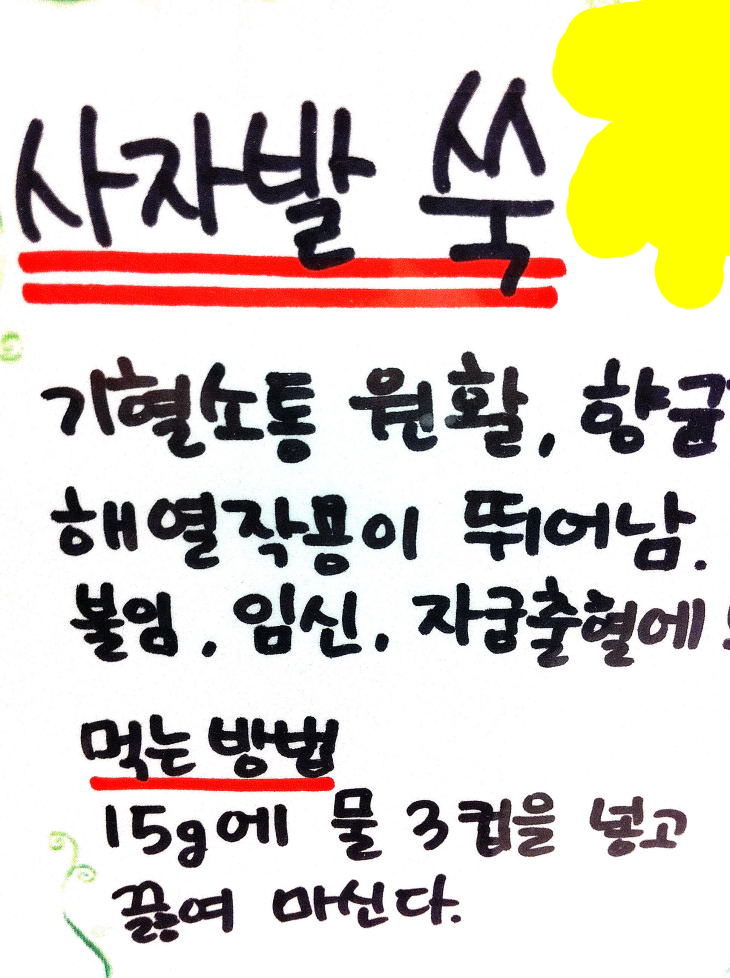 사자발 쑥
기혈소통 원활, 항균
해열작용이 뛰어남.
불임, 임신, 자궁출혈에
먹는 방법
15g에 물 3컵을 넣고
끓여 마신다.